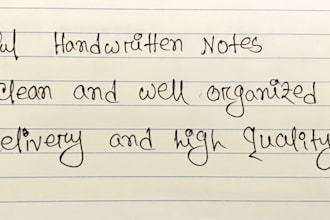 ful Handwritten Notes
Clean and well organized
elivery and high quality